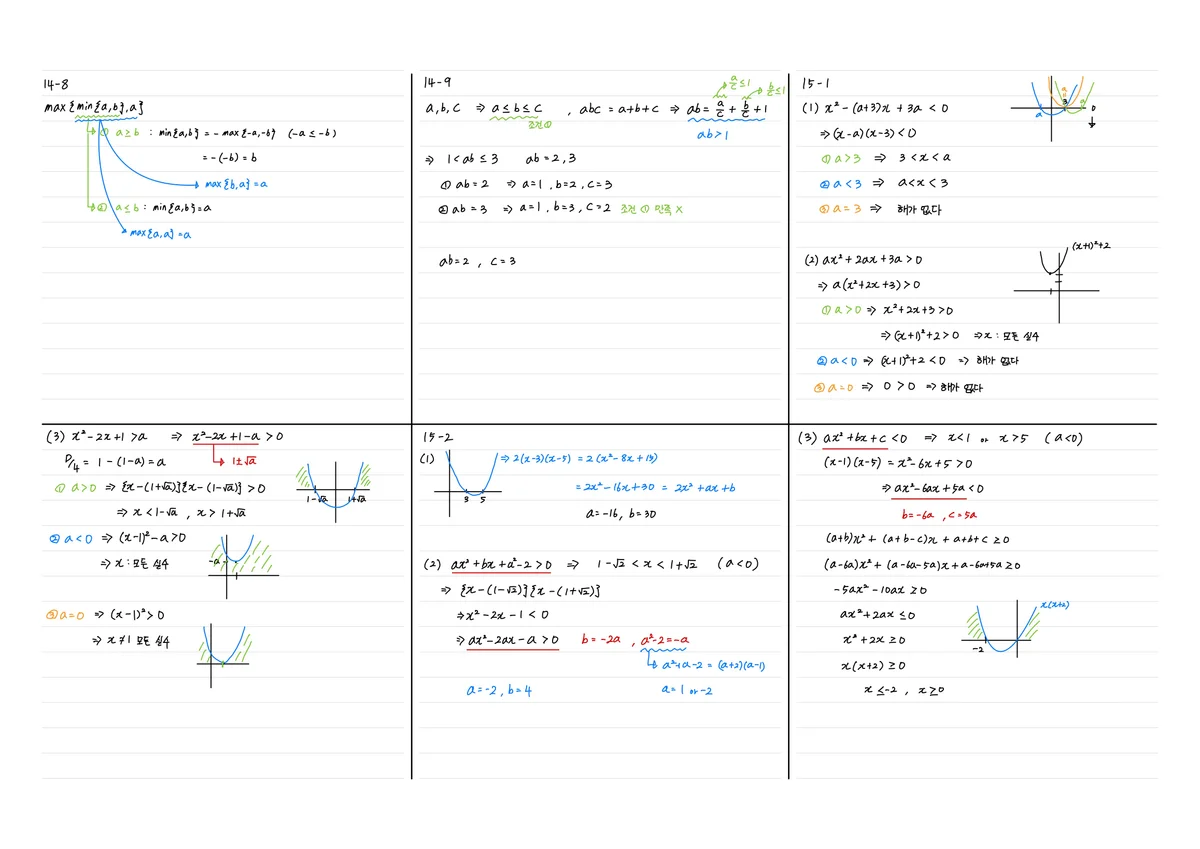 14-8
max{min{a,b},a}
① a≥b : min{a,b} = -max{-a,-b} (-a≤-b)
= -(-b) = b
max{b,a} = a
② a≤b : min{a,b}=a
max{a,a} = a
14-9
a/c≤1
b/c≤1
a,b,c ⇒ a≤b≤c , abc = a+b+c ⇒ ab= a/c + b/c +1
조건①
ab>1
⇒ 1<ab≤3 ab=2,3
① ab=2 ⇒ a=1, b=2, c=3
② ab=3 ⇒ a=1, b=3, c=2 조건 ① 만족 X
ab=2 , c=3
15-1
(1) x²-(a+3)x+3a<0
⇒(x-a)(x-3)<0
① a>3 ⇒ 3<x<a
② a<3 ⇒ a<x<3
③ a=3 ⇒ 해가 없다
a 3 a 0
(2) ax²+2ax+3a>0
(x+1)²+2
⇒ a(x²+2x+3)>0
① a>0 ⇒ x²+2x+3>0
⇒(x+1)²+2>0 ⇒x : 모든 실수
② a<0 ⇒ (x+1)²+2<0 ⇒ 해가 없다
③ a=0 ⇒ 0>0 ⇒해가 없다
(3) x²-2x+1>a ⇒ x²-2x+1-a>0
D/4 = 1-(1-a)=a
1±√a
① a>0 ⇒{x-(1+√a)}{x-(1-√a)}>0
1-√a 1+√a
⇒ x<1-√a , x>1+√a
② a<0 ⇒ (x-1)²-a>0
⇒x : 모든 실수
-a
③ a=0 ⇒ (x-1)²>0
⇒ x≠1 모든 실수
15-2
(1)
3 5
⇒2(x-3)(x-5) = 2(x²-8x+15)
= 2x²-16x+30 = 2x²+ax+b
a=-16, b=30
(2) ax²+bx+a²-2>0 ⇒ 1-√2<x<1+√2 (a<0)
⇒ {x-(1-√2)}{x-(1+√2)}
⇒x²-2x-1<0
⇒ax²-2ax-a>0 b=-2a , a²-2=-a
a²+a-2 = (a+2)(a-1)
a=-2, b=4 a=1 or -2
(3) ax²+bx+c<0 ⇒ x<1 or x>5 (a<0)
(x-1)(x-5) = x²-6x+5>0
⇒ax²-6ax+5a<0
b=-6a , c=5a
(a+b)x²+(a+b-c)x+a+b+c≥0
(a-6a)x²+(a-6a-5a)x+a-6a+5a≥0
-5ax²-10ax≥0
ax²+2ax≤0
x(x+2)
x²+2x≥0
-2
x(x+2)≥0
x≤-2 , x≥0